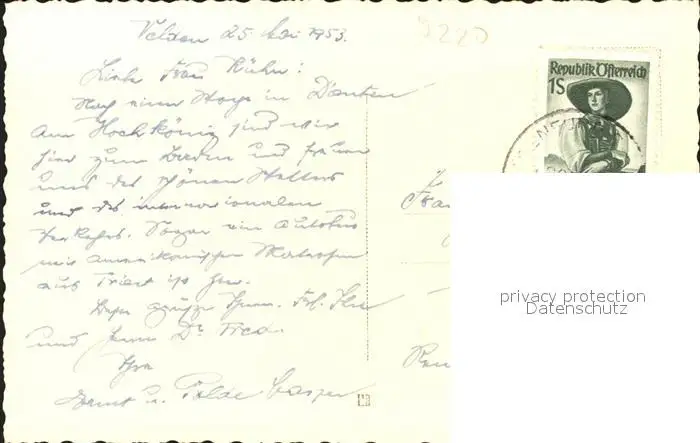 Velden 25. Mai 1953.
5220
Liebe Frau Kühn!
Nach einer Woche in Dienten
am Hochkönig sind wir
hier zum Baden und freuen
uns des schönen Wetters
und des internationalen
Verkehrs. Sogar ein Autobus
mit amerikanischen Matrosen
aus Triest ist hier.
grüsse Ihnen, Frl.
und Herrn Dr. Fred.
Ihre
Ernst u.
Republik Österreich
1S
Frau
privacy protection
Datenschutz